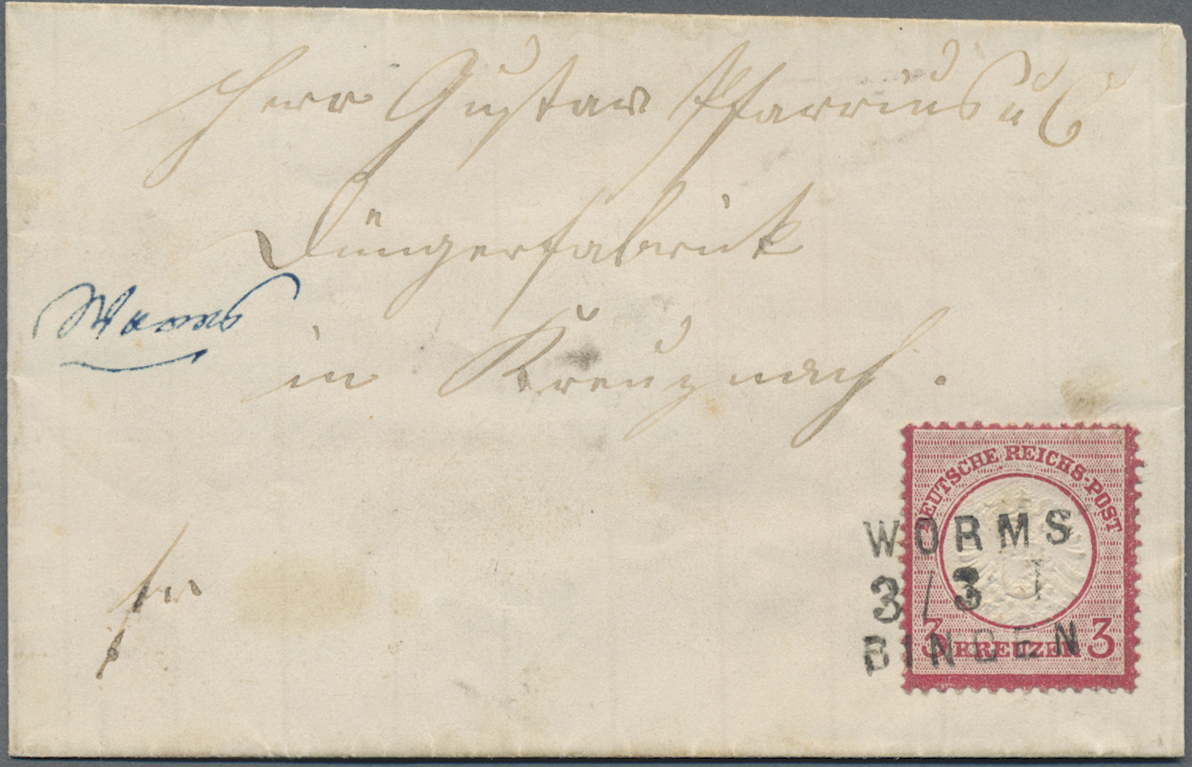 Herr Gustav Pfarrius u C
Düngerfabrik
Worms
in Kreuznach.
DEUTSCHE REICHS-POST
WORMS
3 / 3 I
BINGEN
3 KREUZER 3
fr